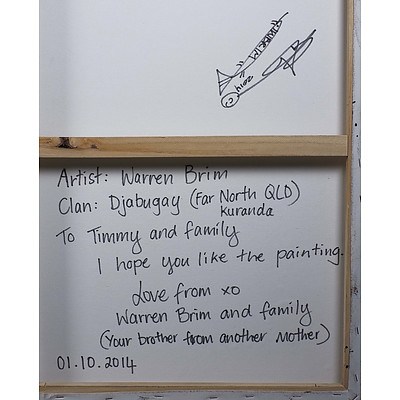 © 2014
Artist: Warren Brim
Clan: Djabugay (Far North QLD)
Kuranda
To Timmy and family
I hope you like the painting.
Love from xo
Warren Brim and family
(Your brother from another Mother)
01.10.2014